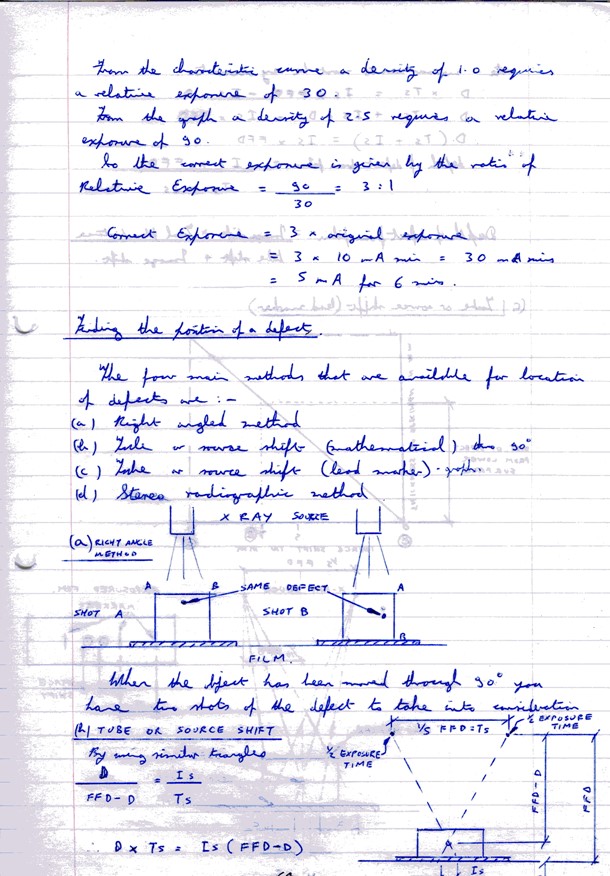 From the characteristic curve a density of 1.0 requires
a relative exposure of 30.
From the graph a density of 2.5 requires a relative
exposure of 90.
So the correct exposure is given by the ratio of
Relative Exposure = 90/30 = 3:1
Correct Exposure = 3 x original exposure
= 3 x 10 mA min = 30 mA mins
= 5 mA for 6 mins.
Finding the position of a defect.
The four main methods that are available for location
of defects are :-
(a) Right angled method
(b) Tube or source shift (mathematical) 90°
(c) Tube or source shift (lead marker) - graph.
(d) Stereo radiographic method
X RAY SOURCE
(a) RIGHT ANGLE
METHOD
A B SAME DEFECT A
SHOT A SHOT B
B
FILM.
When the object has been moved through 90° you
have two shots of the defect to take into consideration
(b) TUBE OR SOURCE SHIFT
1/5 FFD = Ts
1/2 EXPOSURE
TIME
1/2 EXPOSURE
TIME
By using similar triangles
D/FFD-D = Is/Ts
FFD-D
FFD
∴ D x Ts = Is (FFD-D)
Is